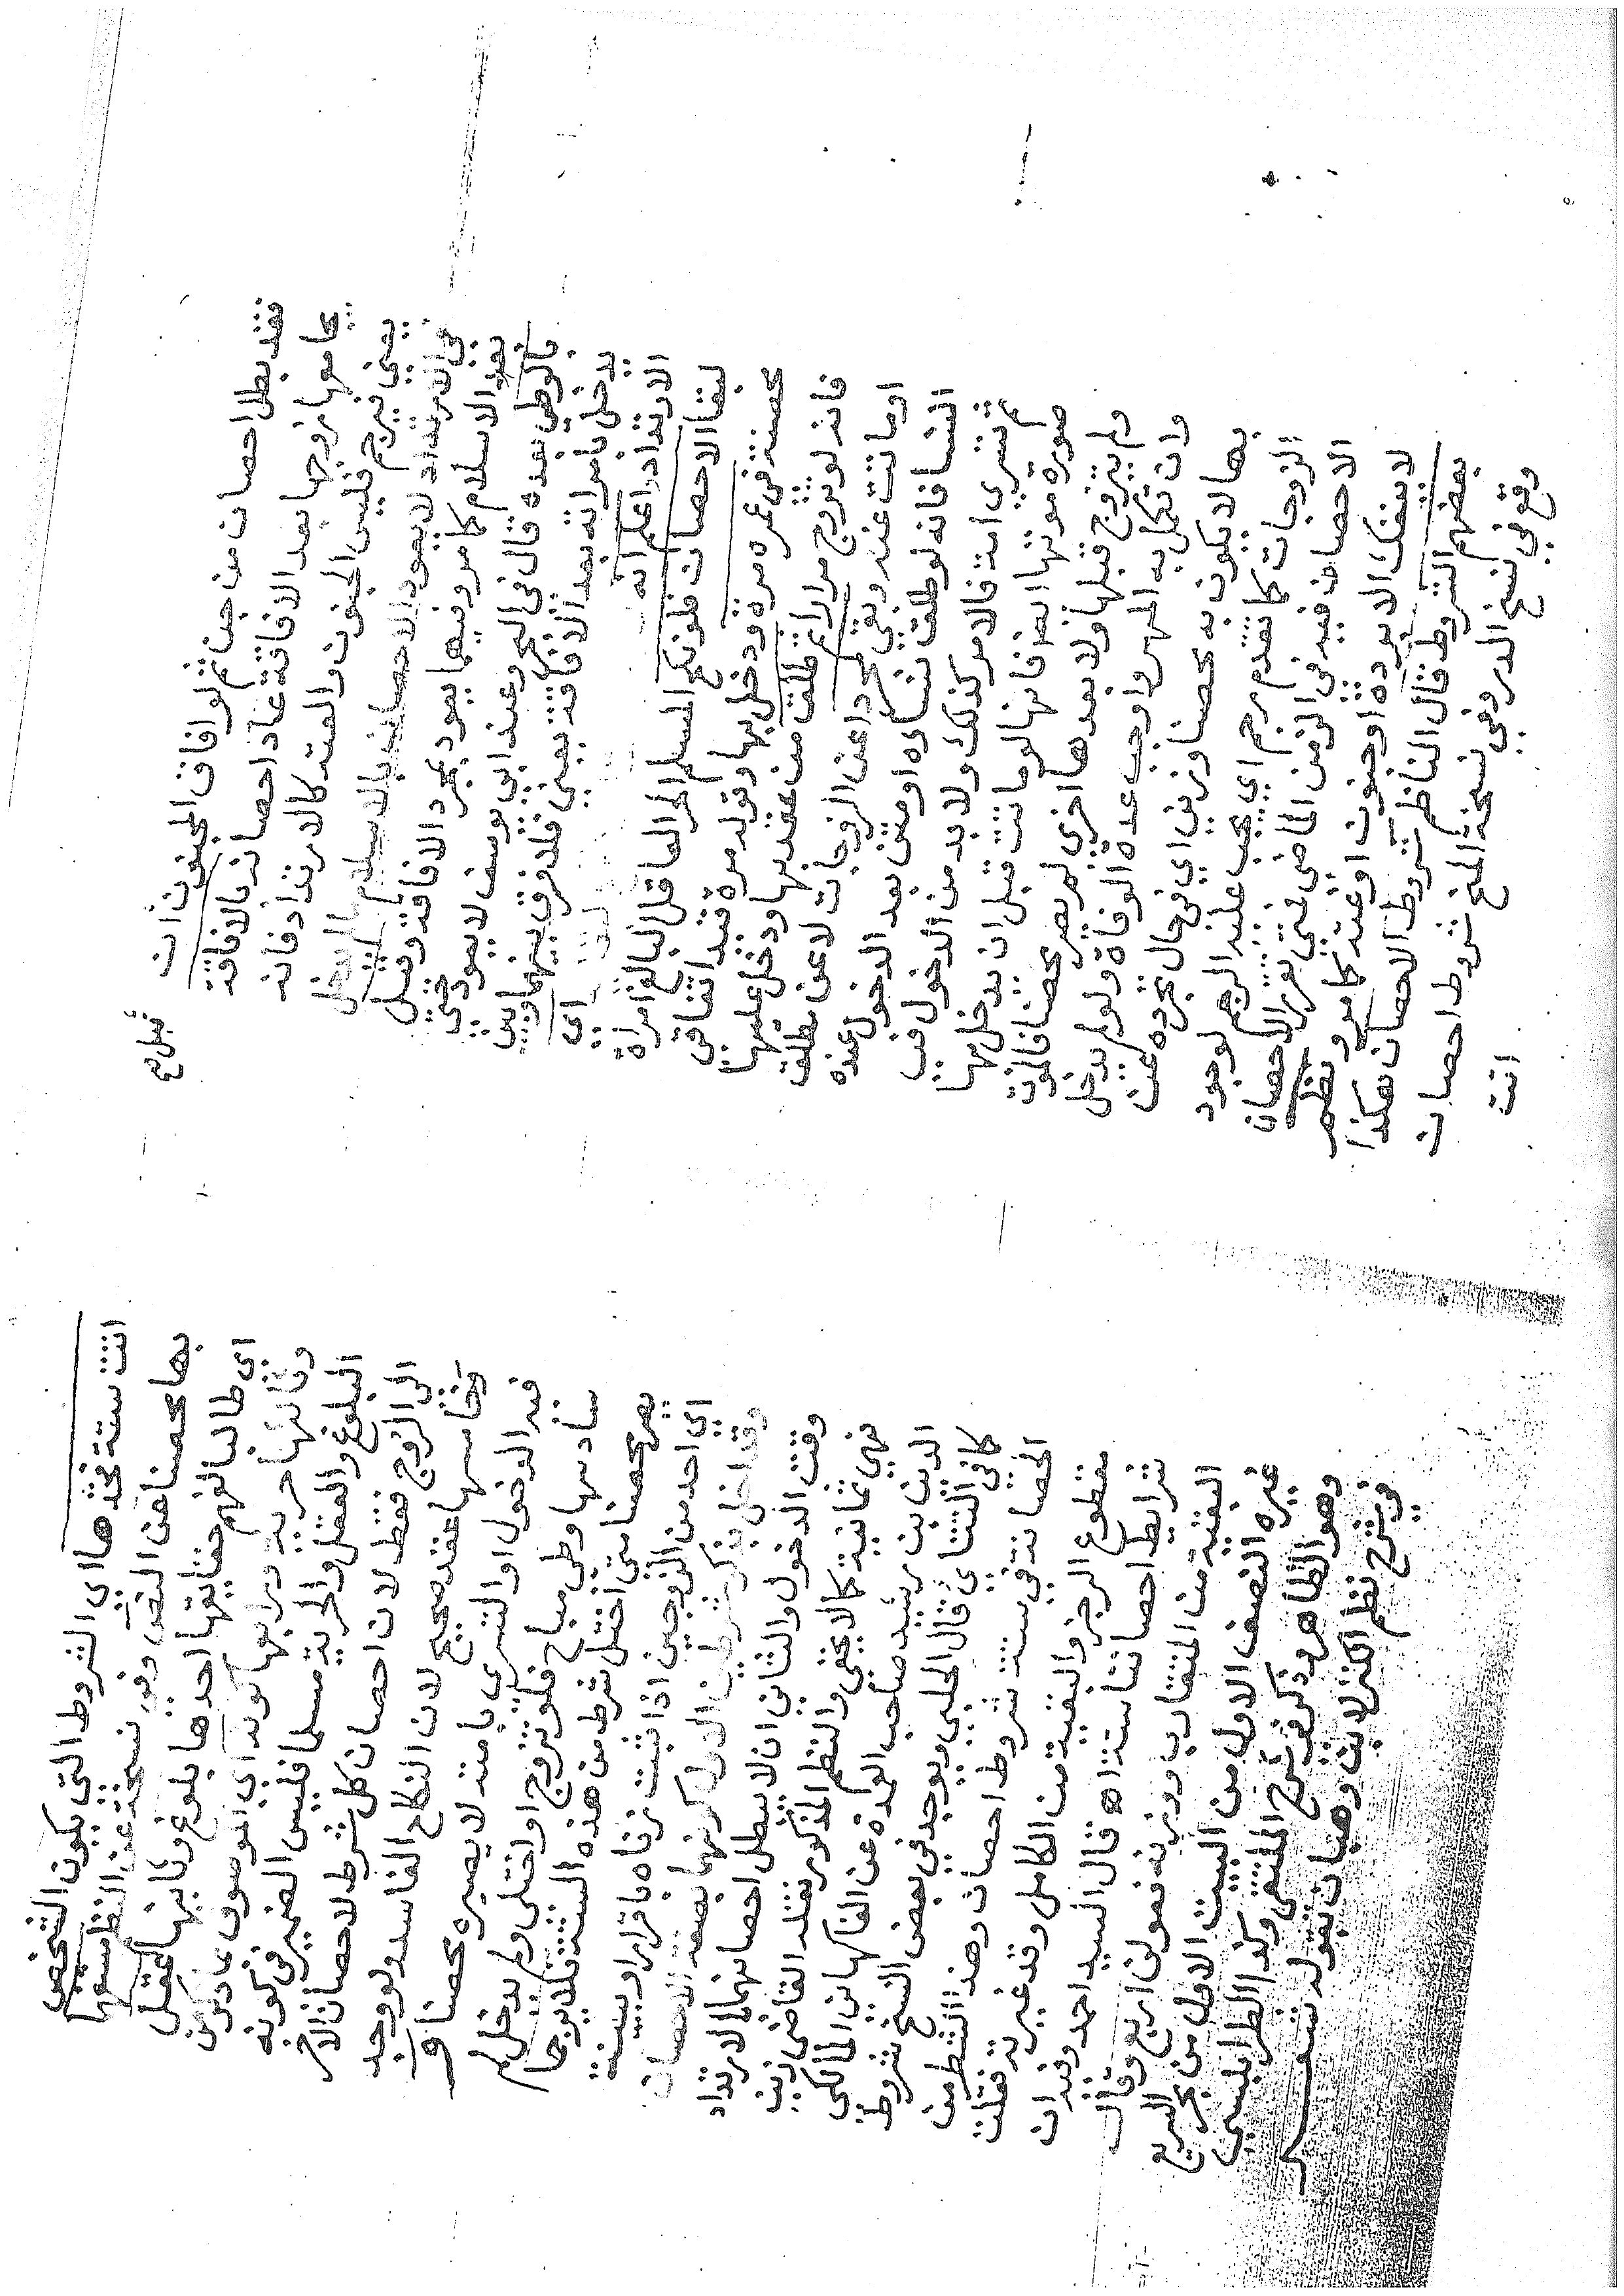 قبل مع
فقد بطل احصان من جن ثم لو افاق المجنون ان
جامعها زوجها بعد الافاقة عاد احصانه بالافاقة
يعني فيرجم فليس الجنون والعته كالارتداد فانه
في الارتداد لا يعود الاحصان بالاسلام ما لم يدخل
بعد الاسلام كما مر وفيهما يعود بمجرد الافاقة وقيل
بالوطئ بعده قال في البحر وعند ابي يوسف لا يعود حتى
يدخل بامراته بعد الافاقة يعني فلا فرق بينهما وبين
الارتداد واعلم انه اى
لبقا الاحصان فلو نكح المسلم الحر العاقل البالغ امراة
محصنة في عمره مرة ودخل بها مرة قيد اتفاقي
فانه لو تزوج مرارا ثم طلق من عقد بها ودخل عليها
او ماتت عنده وبقي مجردا عن الزوجات لا عن مطلق
النسا فانه لو طلق نساءه او متن بعد الدخول عنده
ثم تسرى امة فالامر كذلك ولا بد من الدخول في
صورة موتها ايضا فانها لو ماتت قبل ان يدخل بها
ولم يتزوج قبلها ولا بعدها اخرى لم يصر محصنا فالموت
وان تكمل به المهر واوجب عدة الوفاة ولو لم يدخل
بها لا يكون به محصنا وزنى اي في حال تجرده عن
الزوجات كما تقدم رجم اي يجب عليه الرجم لوجود
الاحصان فيه في الزمن الماضي فمتى تقرر الاحصان
لا ينفك الا برده او جنون او عته كما مر ونظم
بعضهم الشروط فقال الناظم شروط الاحصان هكذا
وقع في نسخ الدر وفي نسخة المنح شروط احصان
اتت
اتت ستة فخذها اى الشروط التي يكون الشخص
بها محصنا عن النص وفي نسخة عن النظ مستفهما
اى طالبا لفهم حقايقها احدها بلوغ وثانيها عقل
وثالثها حرية ورابعها كونه اي الموصوف بما ذكر من
البلوغ والعقل والحرية مسلما فليس الضمير في كونه
الى الزوج فقط لان احصان كل شرط لاحصان الاخر
وخامسها عقد صحيح لان النكاح الفاسد ولو وجد
فيه الدخول او التسري بامته لا يصيره محصنا و
سادسها وطئ مباح فلو تزوج واختلى ولم يدخل لم
يصر محصنا متى اختل شرط من هذه الستة فلا يرجما
اي احد من الزوجين اذا ثبت زناه باقرار او ببينة
وقد اخل بذكر شرطين الاول كونهما بصفة الاحصان
وقت الدخول والثاني ان لا يبطل احصانهما بالارتداد
فهي ثمانية كما لا يخفى والنظم المذكور نقله القاضي زين
الدين بن رشيد صاحب العمدة عن الفاكهاني المالكي
كما في التتائي قال الحلبي ويوجد في بعض النسخ شروط
الحصانة في ستة شروط احصان وهذا الشطر من
مقطوع الرجز والبقية من الكامل وقد غيرته فقلت
شرايط احصان اتت ستة اه قال السيد احمد وفيه ان
البقية من المتقارب ووزنه فعولن اربع وقال
غيره النصف الاول من البيت الاول من بحر السريع
وهو الظاهر وذكر في شرح الملتقى وكذا الطرابلسي
في شرح نظم الكنز لابن وهبان بقوله شعر